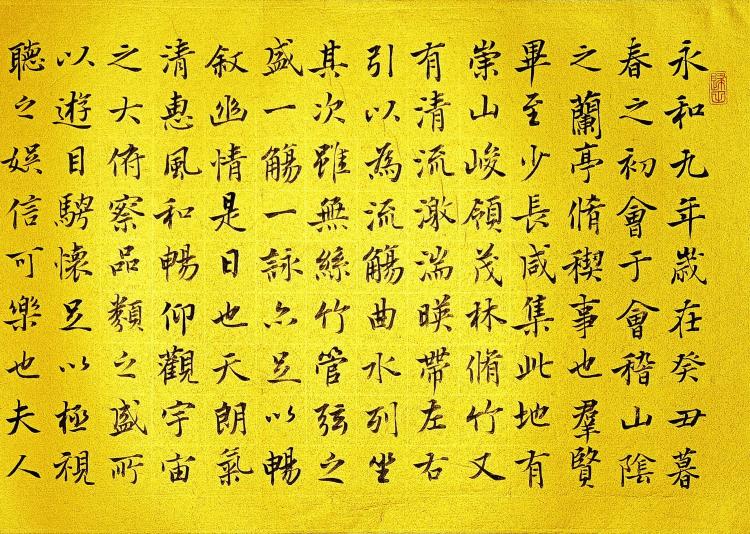 永和九年歲在癸丑暮
春之初會于會稽山陰
之蘭亭脩稧事也羣賢
畢至少長咸集此地有
崇山峻領茂林脩竹又
有清流激湍暎帶左右
引以為流觴曲水列坐
其次雖無絲竹管弦之
盛一觴一詠亦足以暢
敘幽情是日也天朗氣
清惠風和暢仰觀宇宙
之大俯察品類之盛所
以遊目騁懷足以極視
聽之娛信可樂也夫人